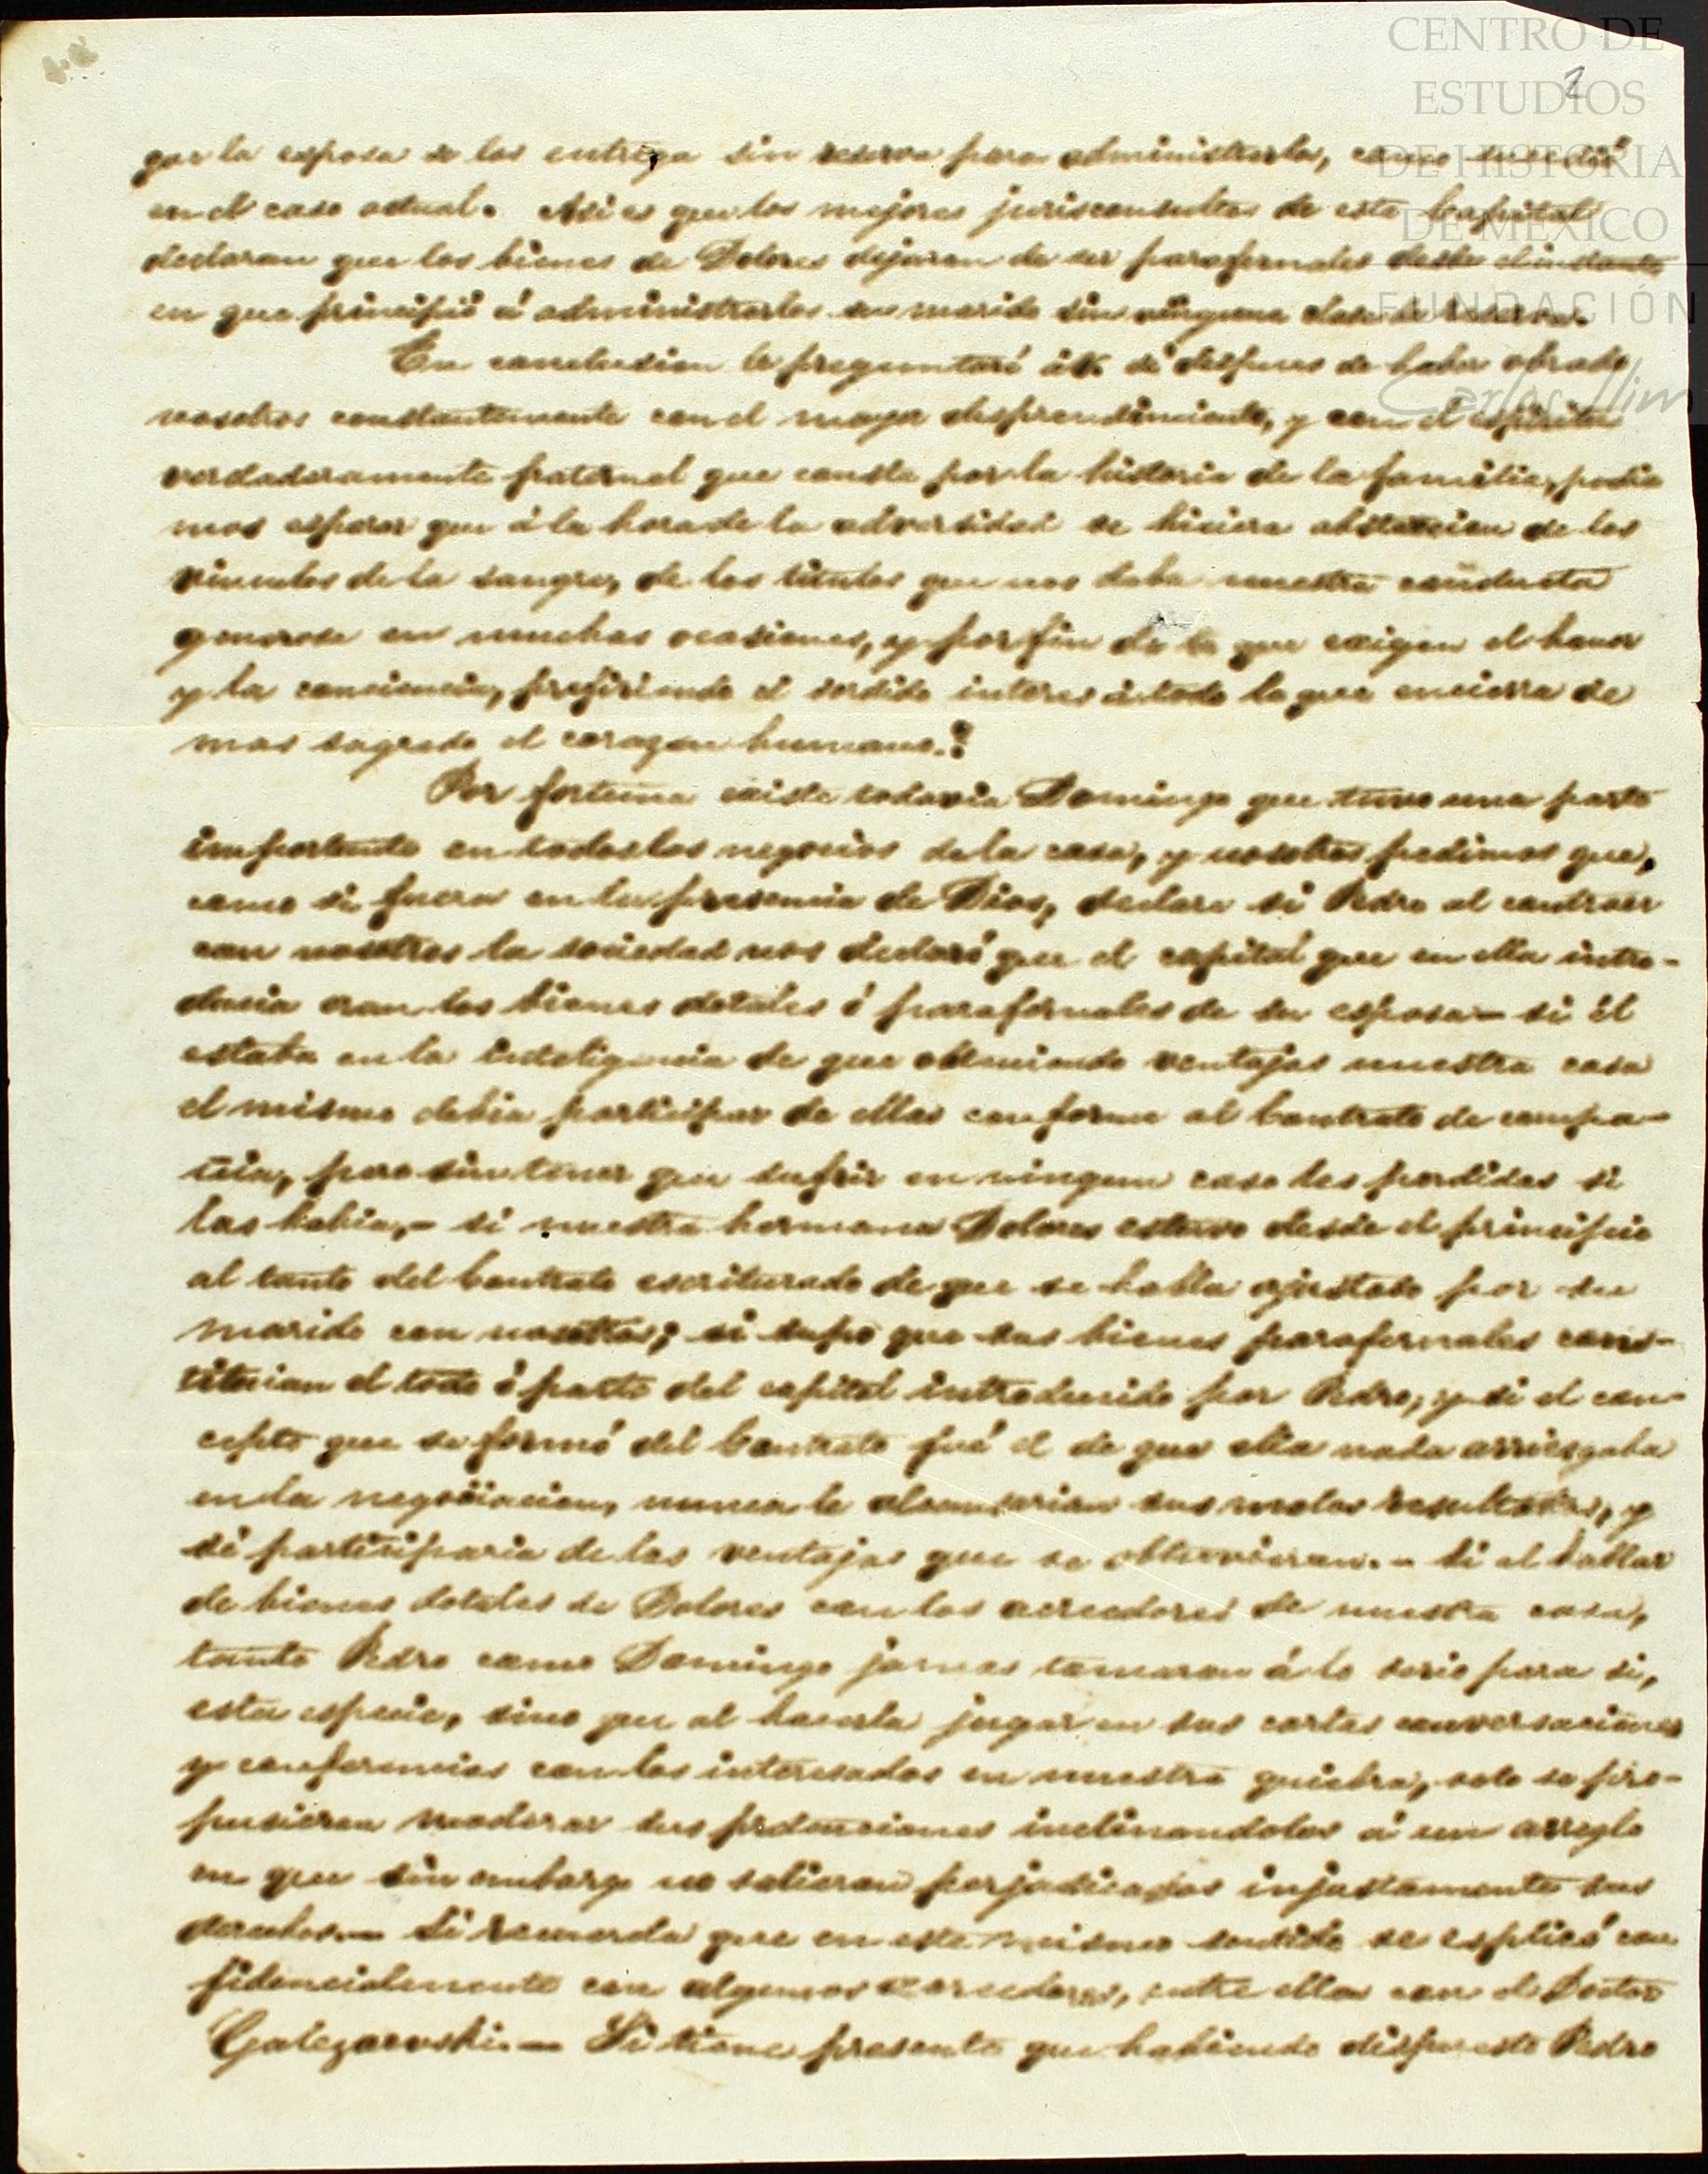 CENTRO DE
ESTUDIOS
DE HISTORIA
DE MÉXICO
FUNDACIÓN
Carlos Slim
2
que la esposa se los entrega sin reserva para administrarlos, como sucedió
en el caso actual. Asi es que los mejores jurisconsultos de esta Capital
declaran que los bienes de Dolores dejaron de ser parafernales desde el instante
en que principió á administrarlos su marido sin ninguna clase de reserva.
En conclusion le preguntaré á V. si despues de haber obrado
nosotros constantemente con el mayor desprendimiento, y con el espiritu
verdaderamente fraternal que consta por la historia de la familia, podia
mos esperar que á la hora de la adversidad se hiciera abstraccion de los
vinculos de la sangre, de los titulos que nos daba nuestra conducta
generosa en muchas ocasiones, y por fin de lo que exigen el honor
y la conciencia, prefiriendo el sordido interes á todo lo que encierra de
mas sagrado el corazon humano.?
Por fortuna existe todavia Domingo que tuvo una parte
importante en todos los negocios de la casa, y nosotros pedimos que,
como si fuera en la presencia de Dios, declare si Pedro al contraer
con nosotros la sociedad nos declaró que el capital que en ella intro-
ducia eran los bienes dotales ó parafernales de su esposa — si él
estaba en la inteligencia de que obteniendo ventajas nuestra casa
el mismo debia participar de ellas conforme al Contrato de compa-
ñia, pero sin tener que sufrir en ningun caso las perdidas si
las habia, — si nuestra hermana Dolores estuvo desde el principio
al tanto del Contrato escriturado de que se habla ajustado por su
marido con nosotros; si supo que sus bienes parafernales cons-
tituian el todo ó parte del capital introducido por Pedro, y si el con-
cepto que se formó del Contrato fué el de que ella nada arriesgaba
en la negociacion, nunca le alcanzarian sus malos resultados, y
si participaria de las ventajas que se obtuvieran. — Si al hablar
de bienes dotales de Dolores con los acreedores de nuestra casa,
tanto Pedro como Domingo jamas tomaron á lo serio para si,
esta especie, sino que al hacerla jugar en sus cartas conversaciones
y conferencias con los interesados en nuestra quiebra, solo se pro-
pusieron moderar sus pretenciones inclinandolos á un arreglo
en que sin embargo no salieran perjudicados injustamente sus
derechos. — Si recuerda que en este mismo sentido se esplicó con
fidencialmente con algunos acreedores, entre ellos con el Doctor
Galezowski. — Si tiene presente que habiendo dispuesto Pedro